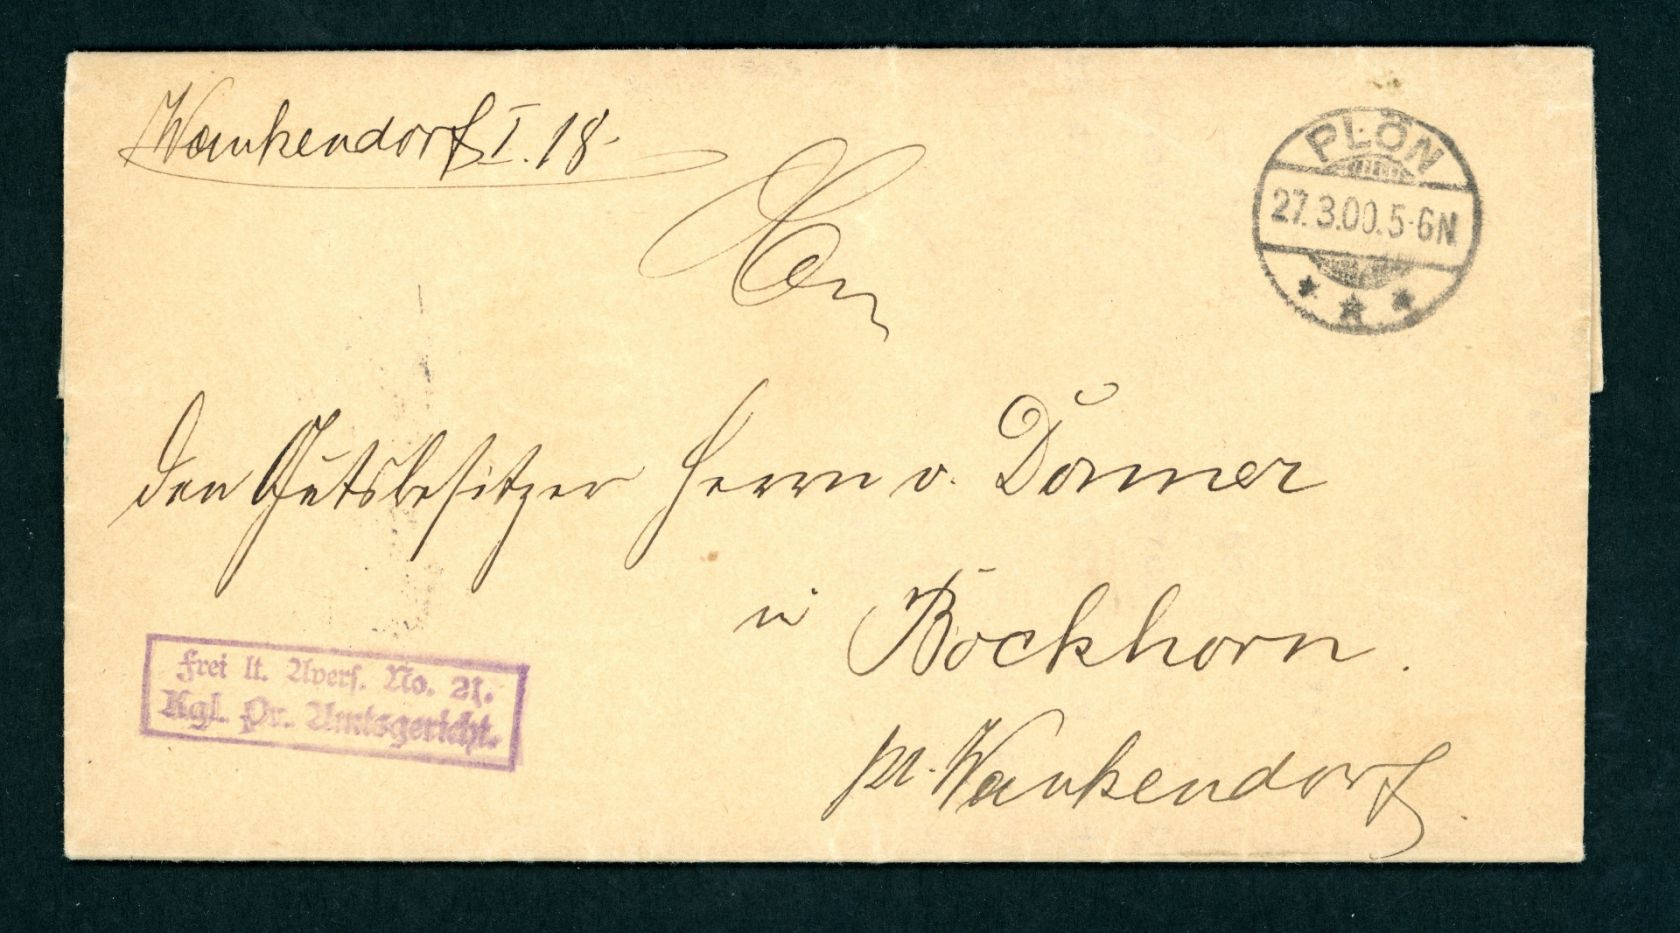 Wankendorf I. 18.
PLÖN
27.3.00.5-6N
An
den Gutsbesitzer Herrn v. Donner
in Bockhorn.
pr. Wankendorf.
Frei lt. Avers. No. 21.
Kgl. Pr. Amtsgericht.